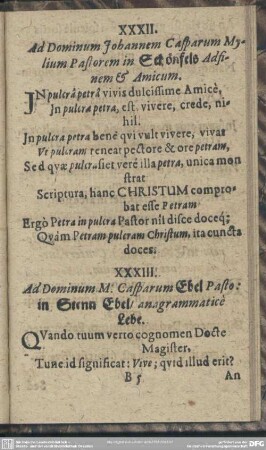 XXXII.
Ad Dominum Johannem Casparum My-
lium Pastorem in Schönfels Adfi-
nem & Amicum.
IN pulcrâ petrâ vivis dulcissime Amicè,
In pulcra petra, est vivere, crede, ni-
hil.
In pulcra petra benè qvi vult vivere, vivas
Vt pulcram teneat pectore & ore petram,
Sed qvæ pulcra siet verè illa petra, unica mon
strat
Scriptura, hanc CHRISTUM compro-
bat esse Petram
Ergò Petra in pulcra Pastor nîl disce doceq;
Qvàm Petram pulcram Christum, ita cuncta
doces.
XXXIII.
Ad Dominum M. Casparum Ebel Pasto:
in Stenn Ebel/ anagrammaticè
Lebe.
QVando tuum verto cognomen Docte
Magister,
Tunc id significat: Vive; qvid illud erit?
B 5
An